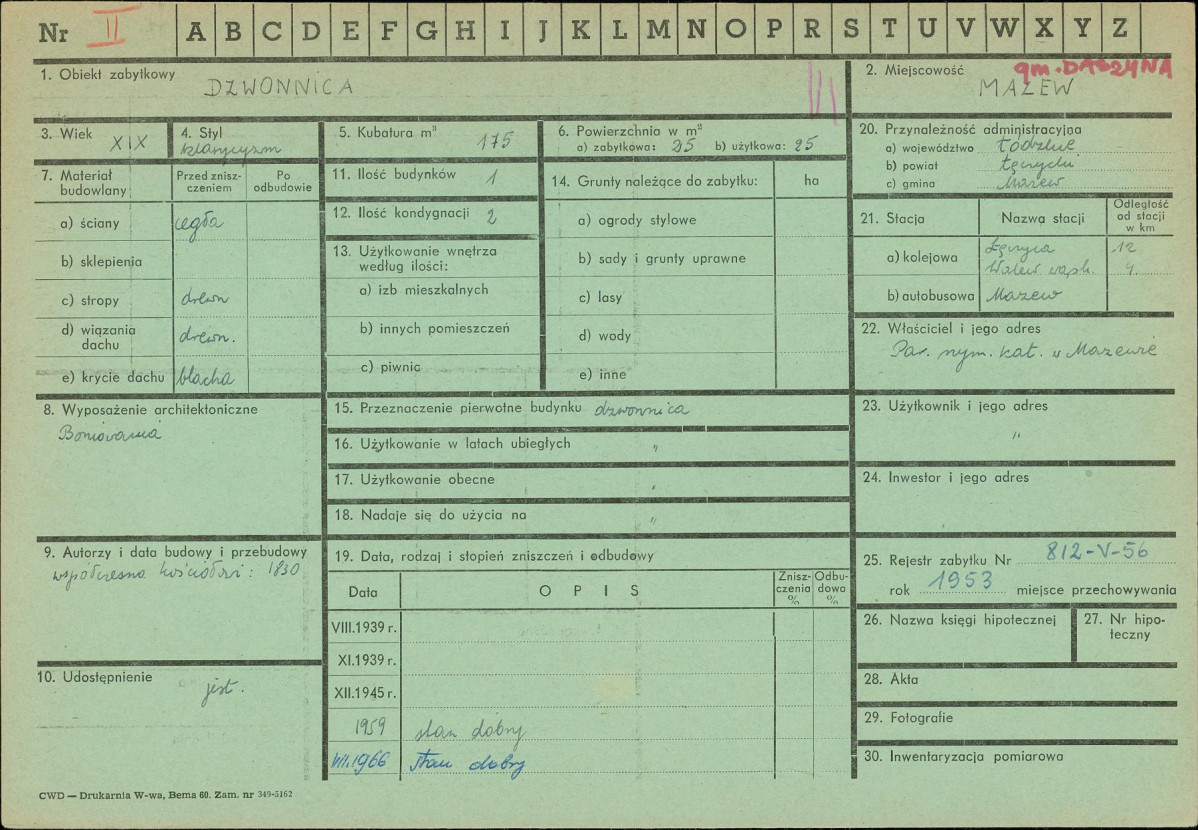 Nr II A B C D E F G H I J K L M N O P R S T U V W X Y Z
1. Obiekt zabytkowy
DZWONNICA
2. Miejscowość gm. DASZYNA
MAZEW
3. Wiek XIX
4. Styl
klasycyzm
5. Kubatura m³ 175
6. Powierzchnia w m²
a) zabytkowa: 25 b) użytkowa: 25
20. Przynależność administracyjna
a) województwo Łódzkie
b) powiat Łęczycki
c) gmina Mazew
7. Materiał budowlany
Przed zniszczeniem
Po odbudowie
a) ściany cegła
b) sklepienia
c) stropy drewn
d) wiązania dachu drewn.
e) krycie dachu blacha
11. Ilość budynków 1
12. Ilość kondygnacji 2
13. Użytkowanie wnętrza
według ilości:
a) izb mieszkalnych
b) innych pomieszczeń
c) piwnic
14. Grunty należące do zabytku: ha
a) ogrody stylowe
b) sady i grunty uprawne
c) lasy
d) wody
e) inne
21. Stacja
Nazwa stacji
Odległość
od stacji
w km
a) kolejowa Łęczyca 12
4.
b) autobusowa Mazew
22. Właściciel i jego adres
Par. rzym. kat. w Mazewie
8. Wyposażenie architektoniczne
Boniowania
15. Przeznaczenie pierwotne budynku dzwonnica
16. Użytkowanie w latach ubiegłych "
17. Użytkowanie obecne "
18. Nadaje się do użycia na "
23. Użytkownik i jego adres
"
24. Inwestor i jego adres
9. Autorzy i data budowy i przebudowy
współczesna kościołowi: 1830
10. Udostępnienie
jest.
19. Data, rodzaj i stopień zniszczeń i odbudowy
Data
OPIS
Zniszczenia
%
Odbudowa
%
VIII.1939 r.
XI.1939 r.
XII.1945 r.
1959 stan dobry
VII.1966 Stan dobry
25. Rejestr zabytku Nr 812-V-56
rok 1953 miejsce przechowywania
26. Nazwa księgi hipotecznej
27. Nr hipoteczny
28. Akta
29. Fotografie
30. Inwentaryzacja pomiarowa
CWD — Drukarnia W-wa, Bema 60. Zam. nr 349-5162